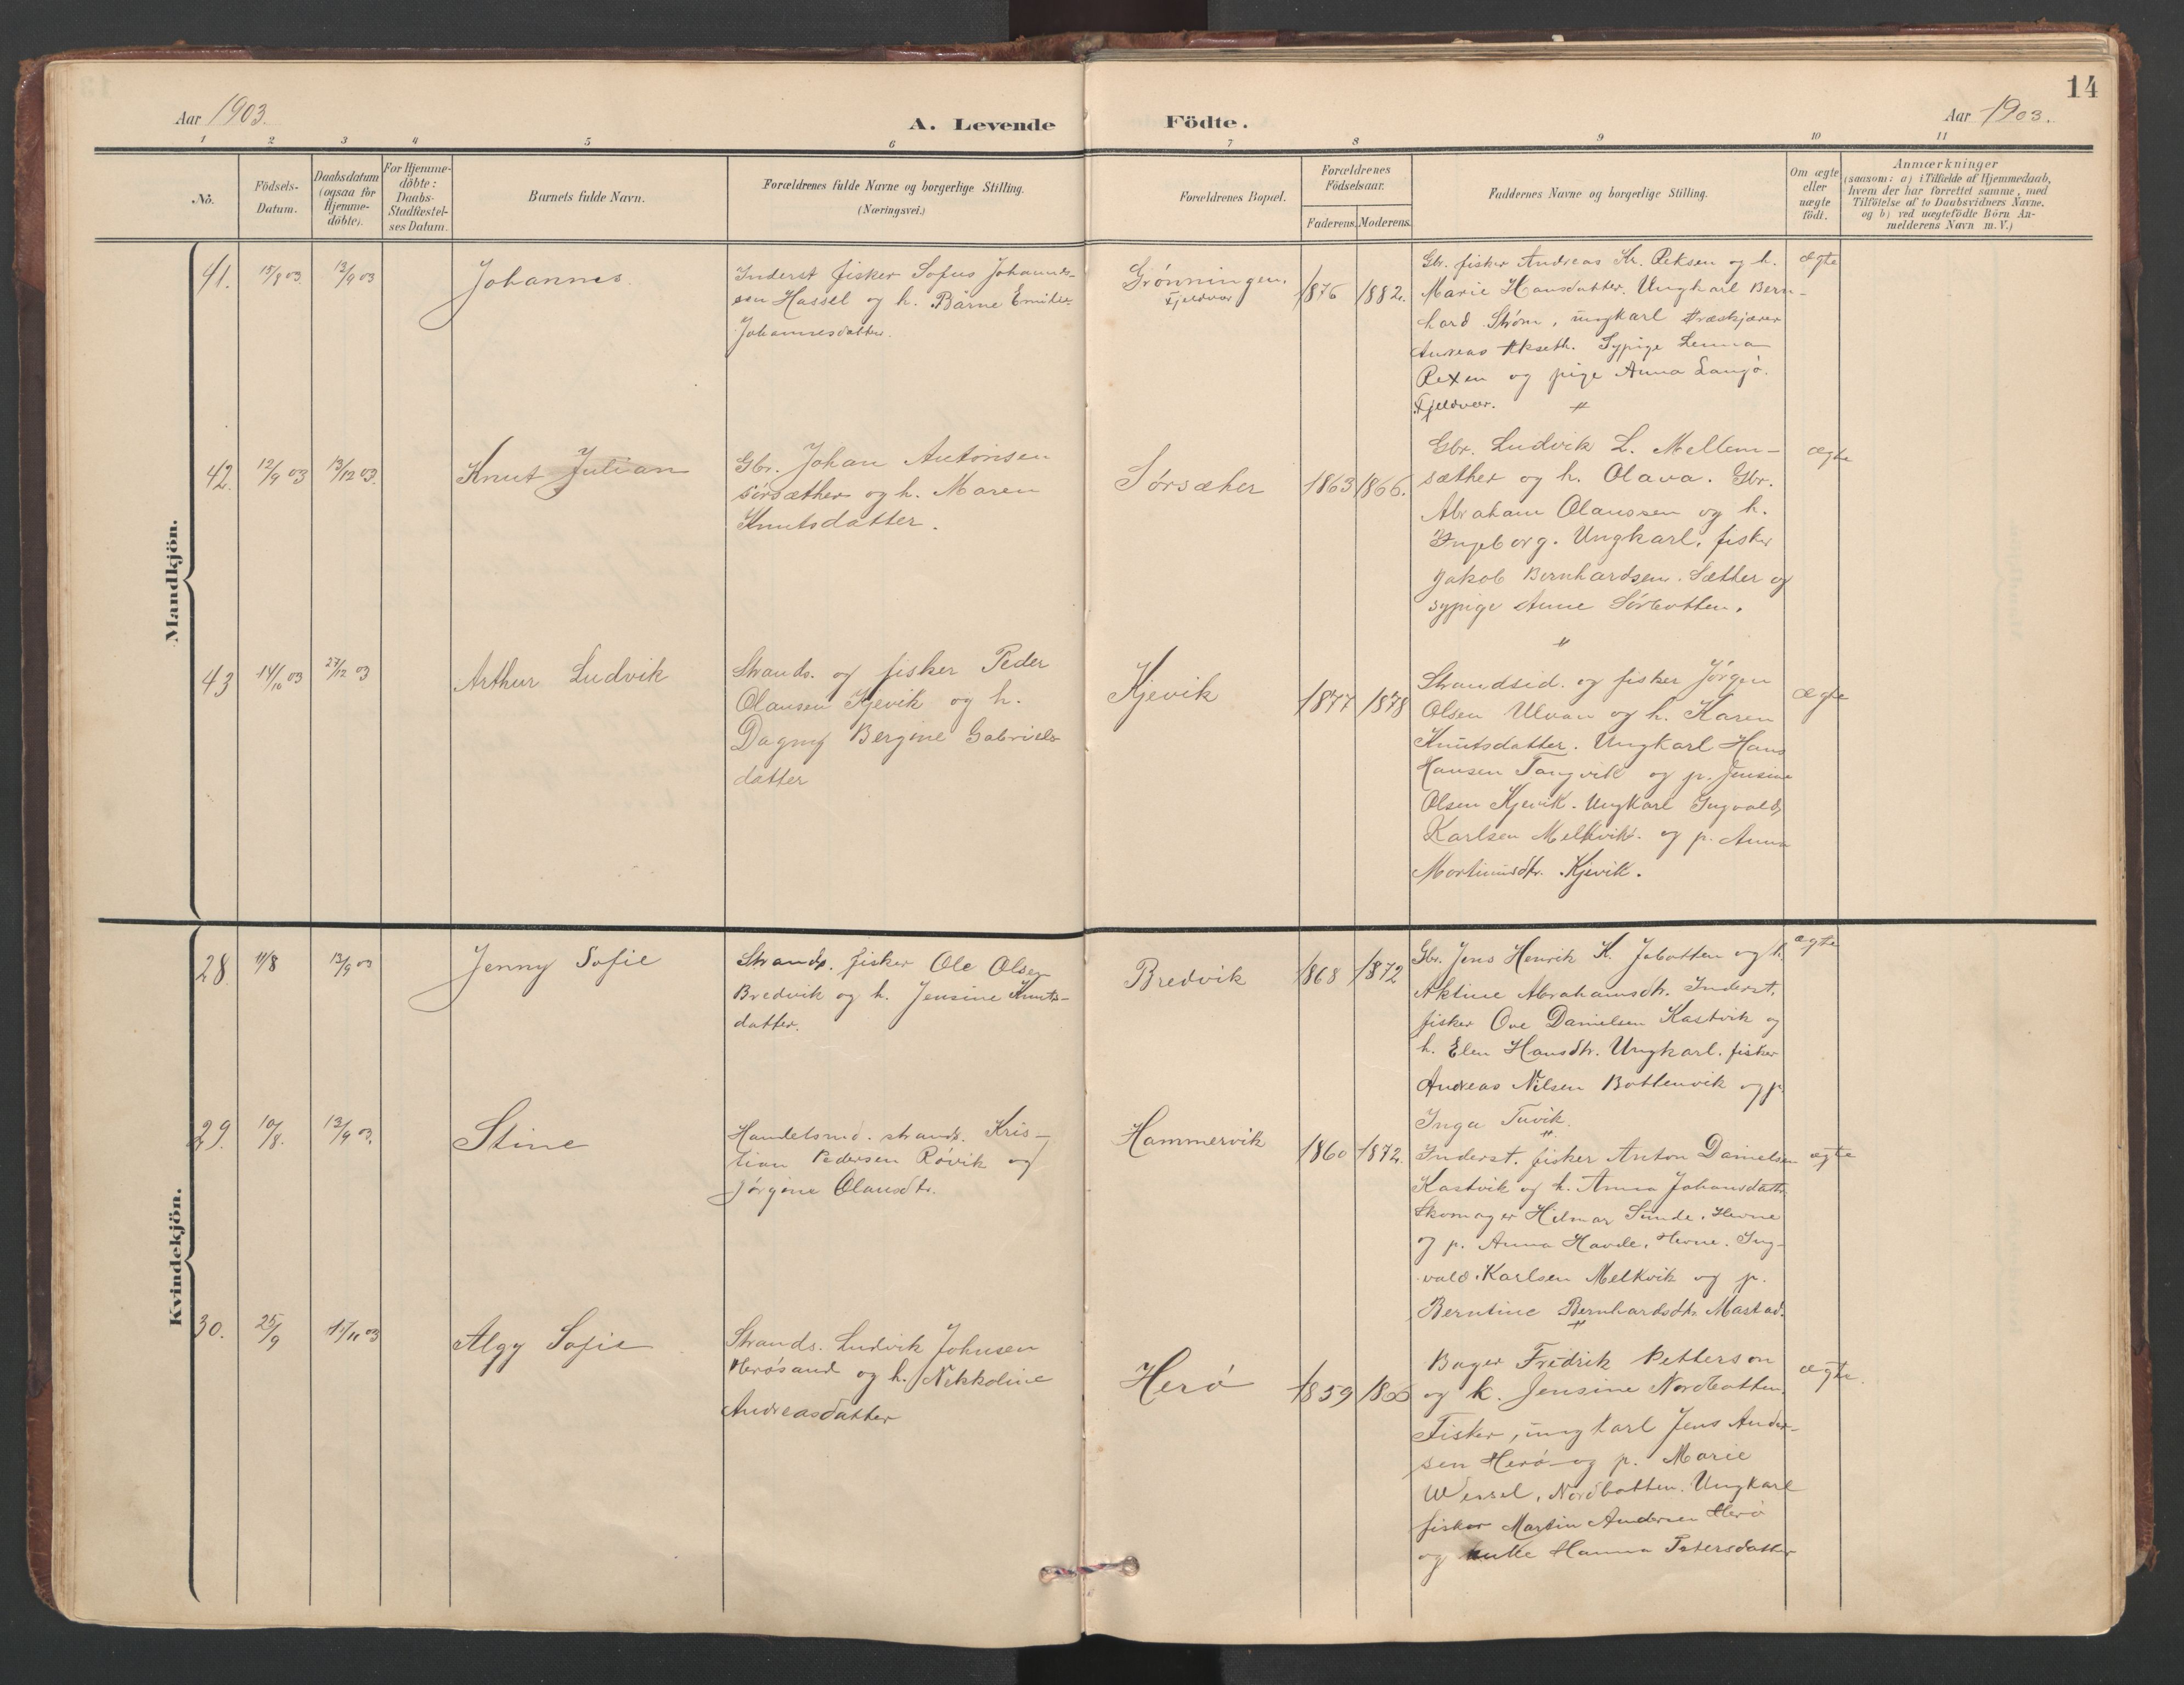 14
Aar 1903.
A. Levende Födte.
Aar 1903.
1 2 3 4 5 6 7 8 9 10 11
No.
Födsels-
Datum.
Daabsdatum
(ogsaa for
Hjemme-
döbte).
For Hjemme-
döbte:
Daabs-
Stadfæstel-
ses Datum.
Barnets fulde Navn.
Forældrenes fulde Navne og borgerlige Stilling.
(Næringsvei.)
Forældrenes Bopæl.
Forældrenes
Födselsaar.
Faderens. Moderens.
Faddernes Navne og borgerlige Stilling.
Om ægte
eller
uægte
födt.
Anmærkninger
(saasom: a) i Tilfælde af Hjemmedaab,
hvem der har forrettet samme, med
Tilföielse af to Daabsvidners Navne.
og b) ved uægtefödte Börn An-
melderens Navn m. V.)
Mandkjön.
41.
15/8 03
13/9 03
Johannes.
Inderst fisker Sofus Johannes-
sen Hassel og h. Barne Emilie
Johannesdatter.
Grønningen,
Fjeldvær
1876
1882.
Gbr. fisker Andreas Kr. Reksen og h.
Marie Hansdatter. Ungkarl Bern-
hard Strøm, ungkarl træskjærer
Andreas Akseth. Sypige Lenna
Rexen og pige Anna Langø.
Fjeldvær. "
ægte
42.
12/9 03
13/12 03.
Knut Julian
Gbr. Johan Antonsen
Sørsæther og h. Maren
Knutsdatter.
Sørsæher
1863
1866.
Gbr. Ludvik L. Mellem-
sæther og h. Olava. Gbr.
Abraham Olaussen og h.
Ingeborg. Ungkarl, fisker
Jakob Bernhardsen. Sætter og
sypige Anne Sørbotten.
"
ægte
43
14/10 03
27/12 03
Arthur Ludvik
Strands. og fisker Peder
Olausen Kjevik og h.
Dagny Bergine Gabriels-
datter
Kjevik
1877
1878
Strandsid. og fisker Jørgen
Olsen Ulvan og h. Karen
Knutsdatter. Ungkarl Hans
Hansen Tangvik og p. Jensine
Olsen Kjevik. Ungkarl Ingvald
Karlsen Melkvik. og p. Anna
Martinusdtr. Kjevik.
ægte
Kvindekjön.
28.
11/8
13/9 03
Jenny Sofie
Strands. fisker Ole Olsen
Bredvik og h. Jensine Knuts-
datter.
Bredvik
1868
1872
Gbr. Jens Henrik K. Jøbotten og h.
Aktine Abrahamsdtr. Inderst,
fisker Ove Danielsen Kastvik og
h. Elen Hansdtr. Ungkarl. fisker
Andreas Nilsen Bottenvik og p.
Inga Tuvik.
"
ægte
29.
10/8.
13/9 03.
Stine
Handelsmd. strands. Kris-
tian Pedersen Røvik og
Jørgine Olausdtr.
Hammervik
1860
1872.
Inderst. fisker Anton Danielsen
Kastvik og h. Anna Johansdatt.
Skomager Hilmar Sunde. Hevne
og p. Anna Havde. Hevne. Ing-
vald Karlsen Melkvik og p.
Berntine Bernhardsdtr. Mastad.
"
ægte
30.
25/9
15/11 03
Algy Sofie
Strands. Ludvik Johnsen
Herøsund og h. Nikkoline
Andreasdatter
Herø
1859
1866
Bager Fredrik Petterson
og k. Jensine Nordbotten.
Fisker, ungkarl Jens Ander-
sen Herø og p. Marie
Wessel, Nordbotten. Ungkarl
fisker Martin Andersen Herø
og enke Hanna Petersdatter
ægte.